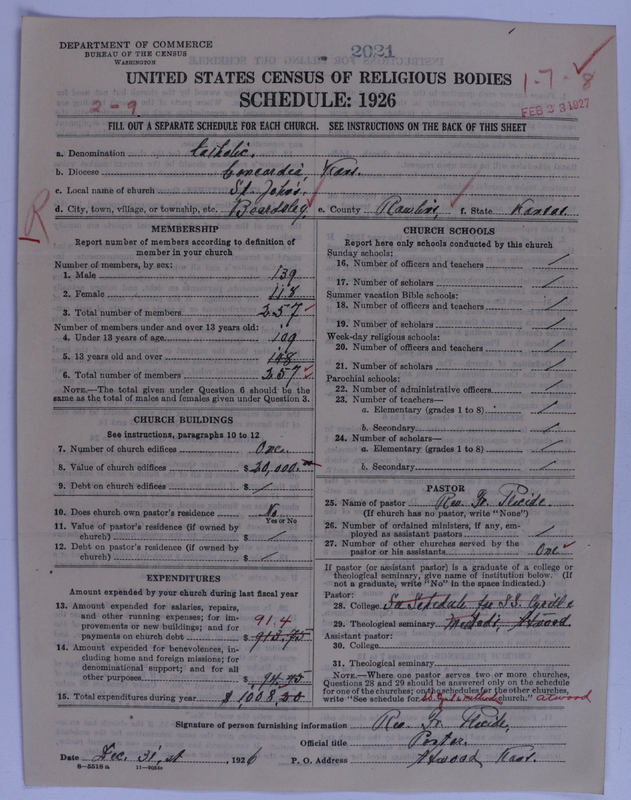 DEPARTMENT OF COMMERCE
BUREAU OF THE CENSUS
WASHINGTON
2021
UNITED STATES CENSUS OF RELIGIOUS BODIES
1-7-8
SCHEDULE: 1926
2-9
FEB 23 1927
FILL OUT A SEPARATE SCHEDULE FOR EACH CHURCH. SEE INSTRUCTIONS ON THE BACK OF THIS SHEET
a. Denomination Catholic.
b. Diocese Concordia, Kans.
c. Local name of church St. John's.
d. City, town, village, or township, etc. Beardsley e. County Rawlins, f. State Kansas.
R
MEMBERSHIP
Report number of members according to definition of
member in your church
Number of members, by sex:
1. Male 139
2. Female 118
3. Total number of members 257
Number of members under and over 13 years old:
4. Under 13 years of age 109
5. 13 years old and over 148
6. Total number of members 257
NOTE.—The total given under Question 6 should be the
same as the total of males and females given under Question 3.
CHURCH BUILDINGS
See instructions, paragraphs 10 to 12
7. Number of church edifices One.
8. Value of church edifices $ 20,000.
9. Debt on church edifices $ /
10. Does church own pastor's residence No
Yes or No
11. Value of pastor's residence (if owned by
church) $ /
12. Debt on pastor's residence (if owned by
church) $ /
EXPENDITURES
Amount expended by your church during last fiscal year
13. Amount expended for salaries, repairs,
and other running expenses; for im-
provements or new buildings; and for
payments on church debt 914 $
14. Amount expended for benevolences, in-
cluding home and foreign missions; for
denominational support; and for all
other purposes $
15. Total expenditures during year $ 1,008.20
CHURCH SCHOOLS
Report here only schools conducted by this church
Sunday schools:
16. Number of officers and teachers /
17. Number of scholars /
Summer vacation Bible schools:
18. Number of officers and teachers /
19. Number of scholars /
Week-day religious schools:
20. Number of officers and teachers /
21. Number of scholars /
Parochial schools:
22. Number of administrative officers /
23. Number of teachers—
a. Elementary (grades 1 to 8) /
b. Secondary /
24. Number of scholars—
a. Elementary (grades 1 to 8) /
b. Secondary /
PASTOR
25. Name of pastor Rev. Fr.
(If church has no pastor, write "None")
26. Number of ordained ministers, if any, em-
ployed as assistant pastors /
27. Number of other churches served by the
pastor or his assistants One
If pastor (or assistant pastor) is a graduate of a college or
theological seminary, give name of institution below. (If
not a graduate, write "No" in the space indicated.)
Pastor:
28. College See Schedule for SS. Cyrill &
29. Theological seminary Methodi, Atwood
Assistant pastor:
30. College
31. Theological seminary
NOTE.—Where one pastor serves two or more churches,
Questions 28 and 29 should be answered only on the schedule
for one of the churches; on the schedules for the other churches,
write "See schedule for church." Atwood
Signature of person furnishing information Rev. Fr.
Official title Pastor.
Date Dec. 31, st, 1926 P. O. Address Atwood Kans.
8-5518 a